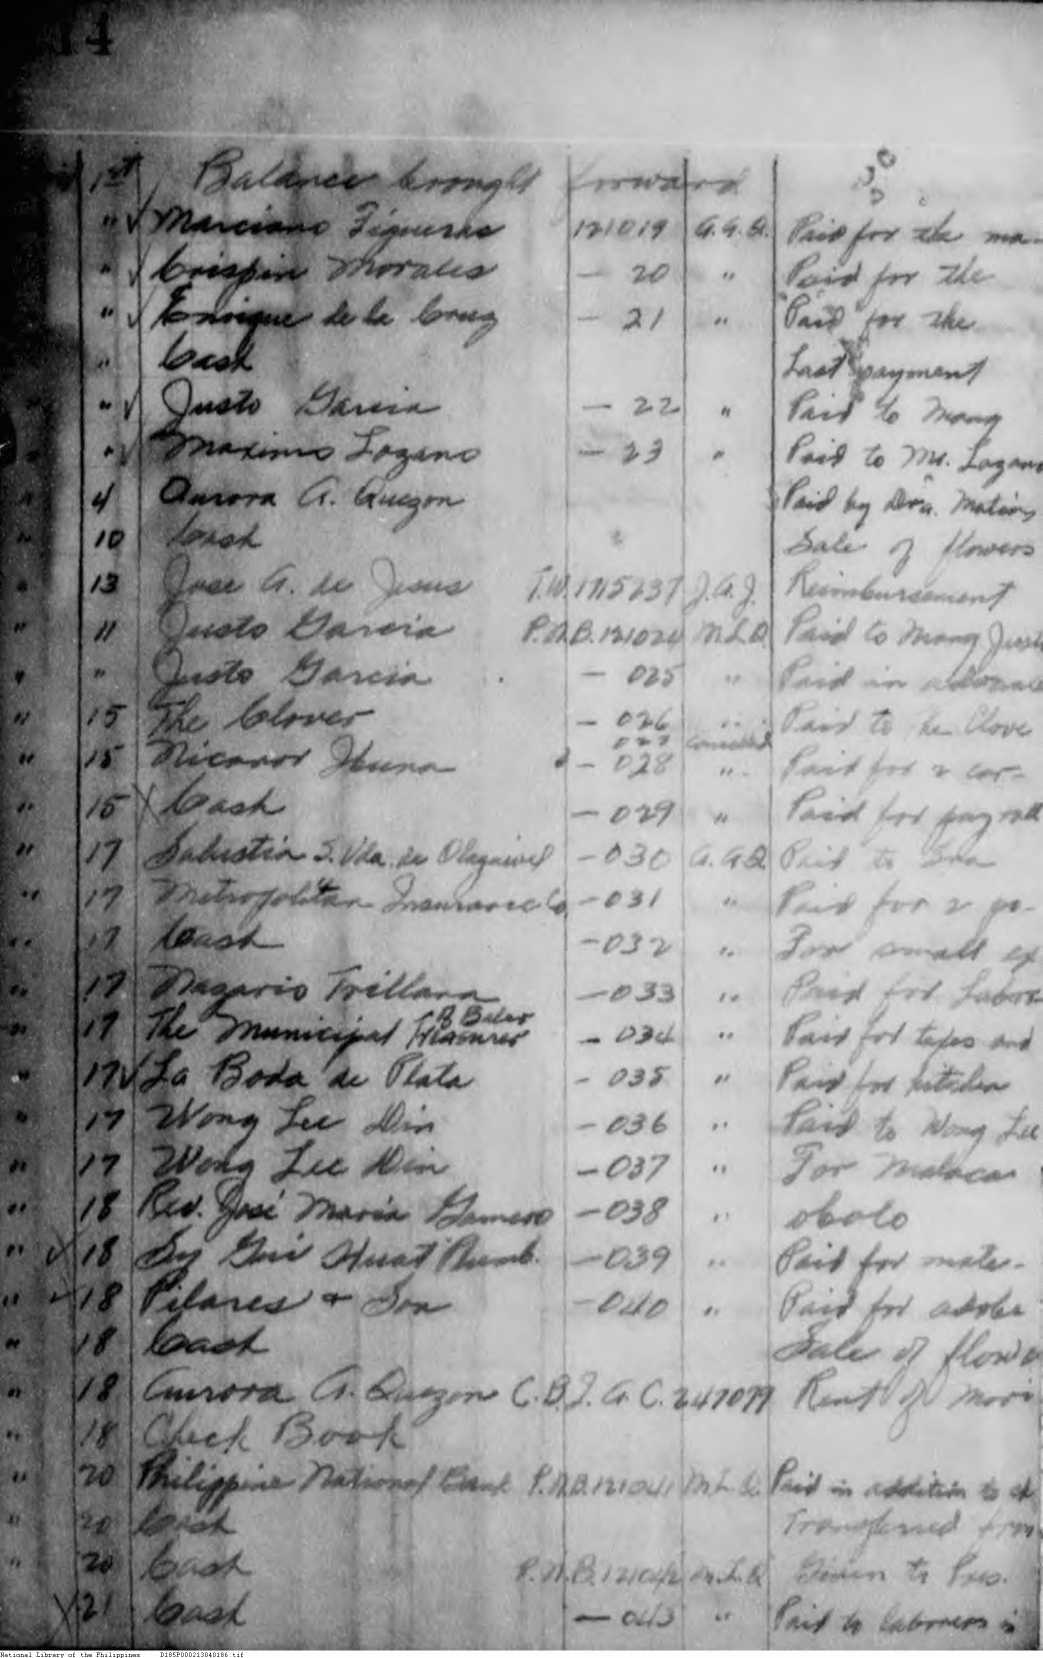 14
1st Balance brought forward
" Marciano Figueras 121019 A.A.Q. Paid for the ma-
" Crispin Morales — 20 " Paid for the
" Enrique de la Cruz — 21 " Paid for the
" Cash Last payment
" Justo Garcia — 22 " Paid to Mang
" Maximo Lozano — 23 " Paid to Mr. Lozano
" 4 Aurora A. Quezon Paid by Dra.
" 10 Cash Sale of flowers
" 13 Jose A. de Jesus T.W. 1715237 J.A.J. Reimbursement
" 11 Justo Garcia P.N.B. 121024 M.L.Q. Paid to Mang Justo
" " Justo Garcia — 025 " Paid in advance
" 15 The Clover — 026 " Paid to the Clove
027 Cancelled
" 15 Nicanor — 028 " Paid for 2 car-
" 15 Cash — 029 " Paid for payroll
" 17 Salustia S. Vda. de — 030 A.A.Q. Paid to Sra
" 17 Metropolitan Insurance Co. — 031 " Paid for 2
" 17 Cash — 032 " For small ex
" 17 Nazario Trillana — 033 " Paid for Labor
" 17 The Municipal Treasurer Baler — 034 " Paid for taxes and
" 17 La Boda de Plata — 035 " Paid for kitchen
" 17 Wong Lee Din — 036 " Paid to Wong Lee
" 17 Wong Lee Din — 037 " For Malaca
" 18 Rev. José Maria — 038 " obolo
" 18 Sy Gui Huat Plumb. — 039 " Paid for mate-
" 18 Pilares & Son — 040 " Paid for adobe
" 18 Cash Sale of flowe
" 18 Aurora A. Quezon C.B.I.A.C. 247079 Rent of
" 18 Check Book
" 20 Philippine National Bank P.N.B. 121041 M.L.Q. Paid in addition to
" 20 Cash Transferred from
" 20 Cash P.N.B. 121042 M.L.Q. Given to Pres.
21 Cash — 043 " Paid to laborers in
National Library of the Philippines D185P000213040186.tif